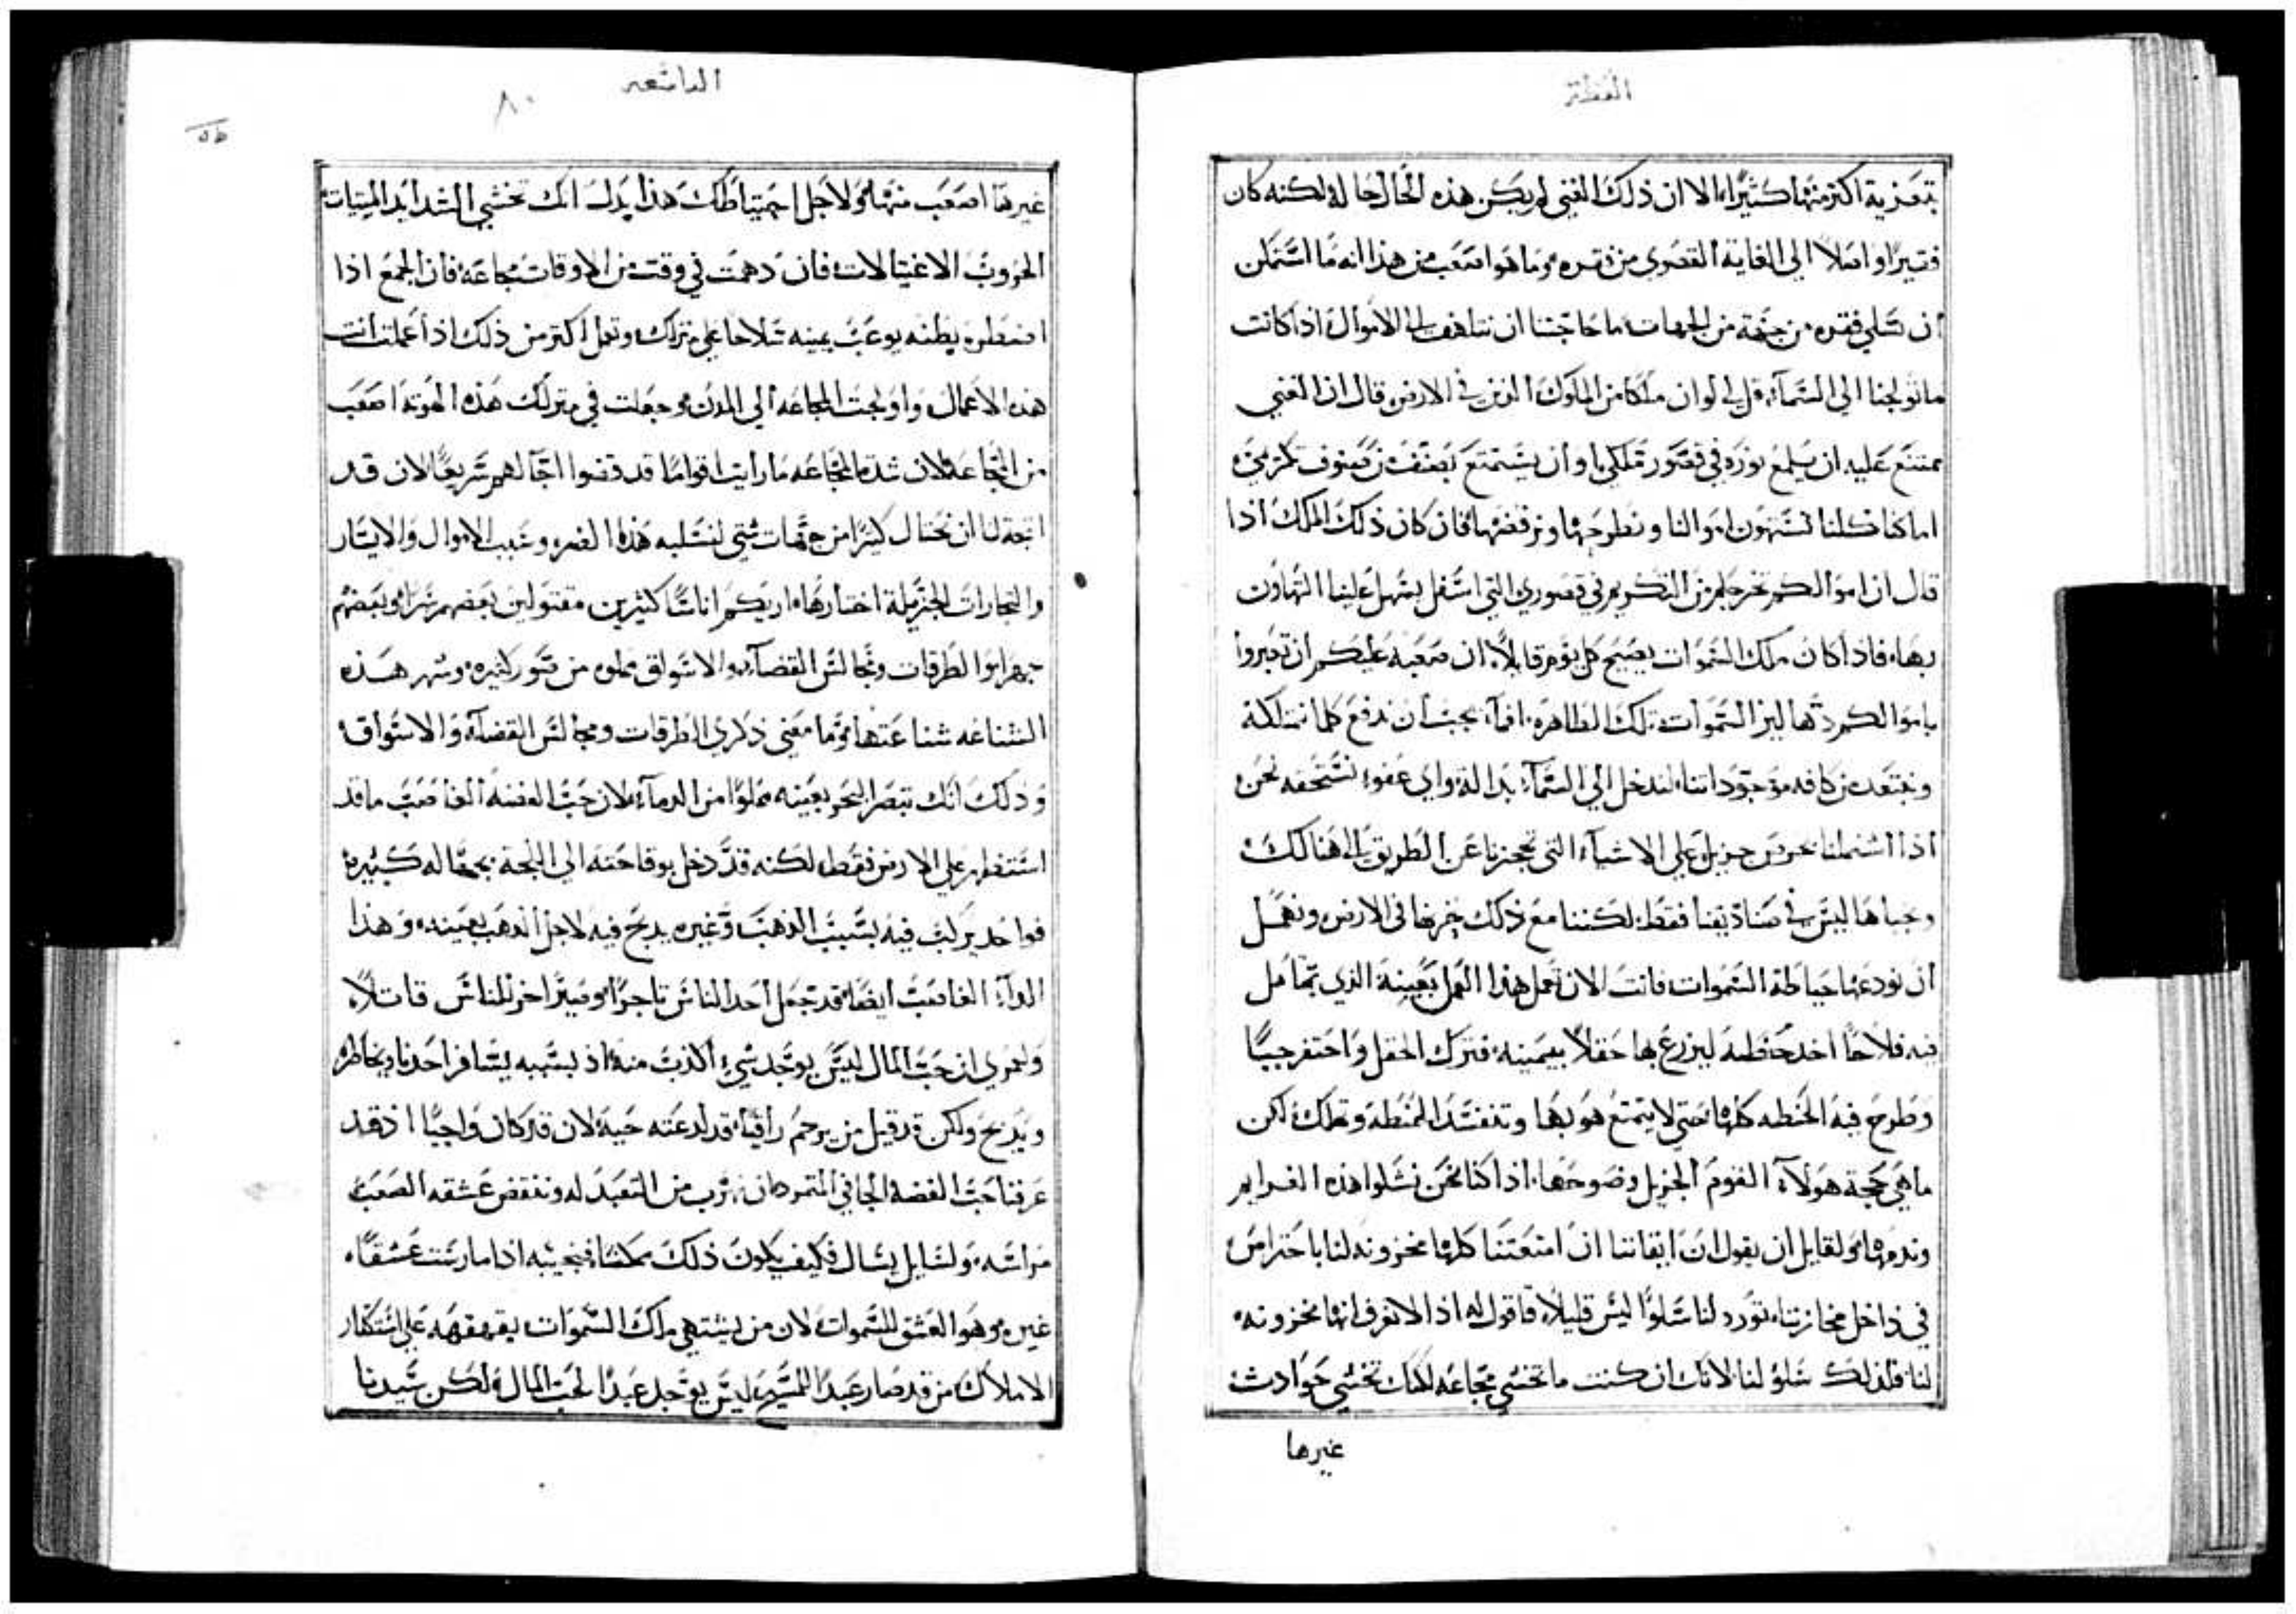 العظة
بتعزية اكثر منها كثيرًا، الا ان ذلك الغني لم يكن هذه الحال حاله لكنه كان
فقيرًا واصلاً الي الغاية القصوي من فقره، وما هو اصعب من هذا انه ما استمكن
ان يتسلي فقره من جهة من الجهات، ما حاجتنا ان نتلهف الاموال اذا كانت
ما تولجنا الي السماء، قل لي لو ان ملكًا من الملوك الذين في الارض قال ان الغني
ممتنع عليه ان يلمع نوره في قصور مملكتي او ان يستمتع بصنف من صنوف تكرمتي
اما كنا كلنا نستهون اموالنا ونطرحها ونرفضها فان كان ذلك الملك اذا
قال ان اموالكم تخرجكم من التكريم في قصوري التي اسفل يسهل علينا التهاون
بها، فاذا كان ملك السموات يصيح كل يوم قايلاً، ان صعبه عليكم ان تعبروا
باموالكم دهاليز السموات تلك الطاهره، افما يجب ان ندفع كلما نمتلكه
ونبتعد من كافة موجوداتنا، لندخل الي السماء بدالة، واي عفو نستحقه نحن
اذا اشتملنا بحرص جزيل علي الاشياء التي تحجزنا عن الطريق الي هنالك
وخبأها ليس في صناديقنا فقط، لكننا مع ذلك نخزنها في الارض ونهمل
ان نودعها حياطة السموات فانت الان تعمل هذا العمل بعينه الذي يماثل
فيه فلاحًا اخذ حنطه ليزرع بها حقلاً بعينه، فترك الحقل واحتفر جبًا
وطرح فيه الحنطه كلها، حتي لا يتمتع هو بها وتنفسد الحنطه وتهلك، لكن
ما هي حجة هولآء القوم الجزيل وضوحها، اذا كنا نحن نشلوا هذه الغرايم
ونذمها، ولقايل ان يقول ان ايقاننا ان امتعتنا كلها مخزونه لنا باحتراس
في داخل مخازننا، تورد لنا سلوًا ليس قليلاً، فاقول له اذا لا نعرف انها مخزونه
لنا، فلذلك سلوُ لنا، لانك ان كنت ما تخشي مجاعه لكنك تخشي حوادث
غيرها
التاسعه
٨٠
غيرها اصعب منها، ولاجل احتياطك هذا يدل انك تخشي الشدايد الميتات
الحروب الاغتيالات، فان دهمت في وقت من الاوقات مجاعه، فان الجمع اذا
اضطره بطنه يوعب يمينه سلاحا علي منزلك وتعمل اكتر من ذلك، اذا عملت انت
هذه الاعمال، واولجت المجاعه الي المدن، وجعلت في منزلك هذه الهوته اصعب
من المجاعه، لان شدة المجاعه ما رايت اقوامًا قد قضوا اجالهم سريعًا، لان قد
اتجه لنا ان نحتال كثيرًا من جهات شتي لنتسلبه هذا الضر، وبسبب الاموال والايسار
والتجارات الجزيلة اختارها، اريكم اناسًا كثيرين مقتولين بعضهم سرًا، وبعضهم
جهرا، والطرقات ومجالس القضاء، والاسواق مملوه من شرور كثيره، وشهر هذه
الشناعه شناعتها، وما معني ذكري الطرقات ومجالس القضاة، والاسواق،
وذلك انك تبصر البحر بعينه مملوًا من الدماء، لان حب الفضه الغاصب ما قد
استظهر علي الارض فقط، لكنه قد دخل بوقاحته الي اللجة بجهاله كبيره
فواحد يركب فيه بسبب الذهب، وغيره يدبح فيه لاجل الذهب بعينه، وهذا
الداء الغاصب ايضًا، قد جعل احد الناس تاجرًا، وصير اخر للناس قاتلاً،
ولعمري ان حب المال ليس يوجد شيء اكذب منه، اذ بسببه يسافر احدنا ويخاطر
ويدبح، ولكن قد قيل من يرحم راقيًا، قد لدغته حية، لان قد كان واجبًا اذ قد
عرفنا حب الفضة الجافي المتمرد ان نهرب من التعبد له وننقض عشقه الصعب
مراسه، ولسايل يسال فكيف يكون ذلك ممكنا، فنجيبه اذا مارست عشقًا،
غيره، وهو العشق للسموات، لان من يشتهي ملك السموات يقهقهه علي استكثار
الاملاك، من قد صار عبدًا للمسيح، ليس يوجد عبدًا لحب المال، لكن سيدنا